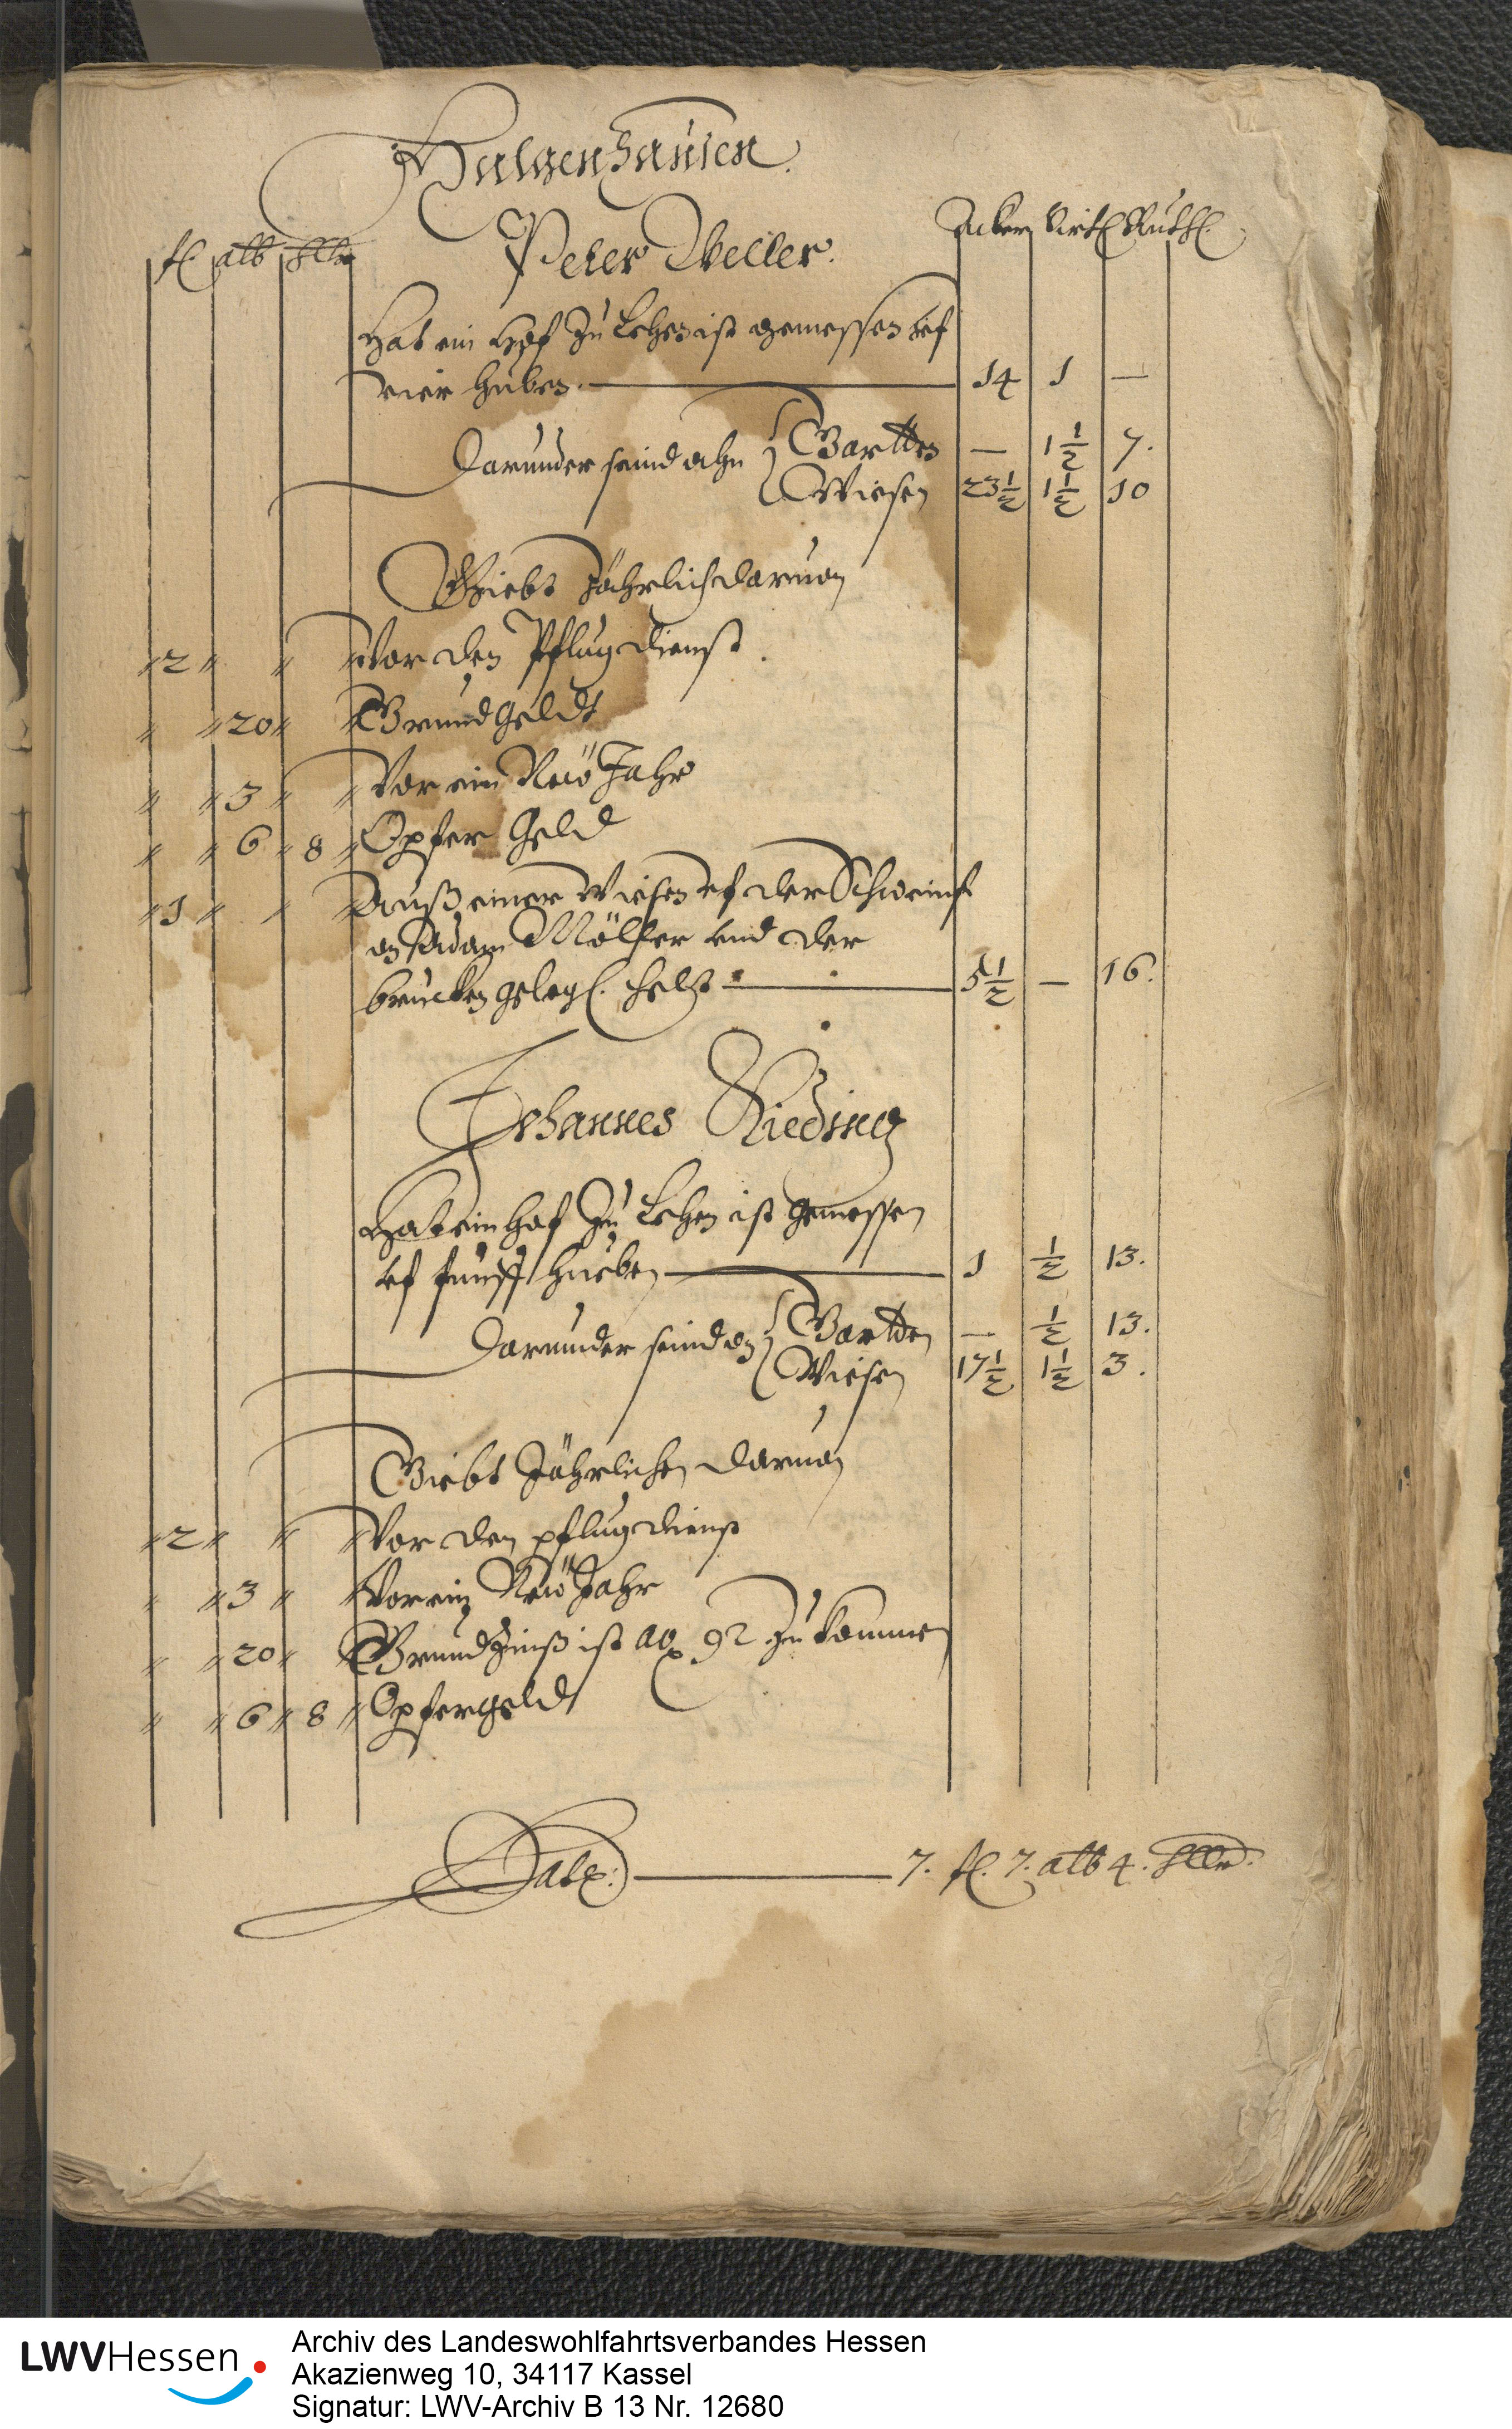 Halgenhausen.
fl. alb hllr
Peter Weller.
Acker Virtl Ruth.
Hat ein Hof zu Lehen ist gemessen uf
vier Huben. — 14 1 —
Darunder seind ahn Gartten — 1½ 7.
Wiesen 23½ 1½ 10
Giebt Jährlich daruon
2 Vor den Pflug dienst.
20 Grund Geldt
3 Vor ein Neü Jahr
6 8 Opfer Geld
1 Auß einer Wiesen uf der Schweinf
an Adam Möller und der
brücken geleg. helt — 5½ — 16.
Johannes Rieding
Hat ein Hof zu Lehen ist gemessen
uf fünff Hueben — 1 ½ 13.
Darunder seind an Gartten — ½ 13.
Wiesen 17½ 1½ 3.
Giebt Jährlichen daruon
2 Vor den pflugdienst
3 Vor ein Neü Jahr
20 Grundzinß ist ao 92 zu kommen
6 8 Opfergeld
Latg: — 7. fl. 7. alb 4. hllr.
LWVHessen
Archiv des Landeswohlfahrtsverbandes Hessen
Akazienweg 10, 34117 Kassel
Signatur: LWV-Archiv B 13 Nr. 12680